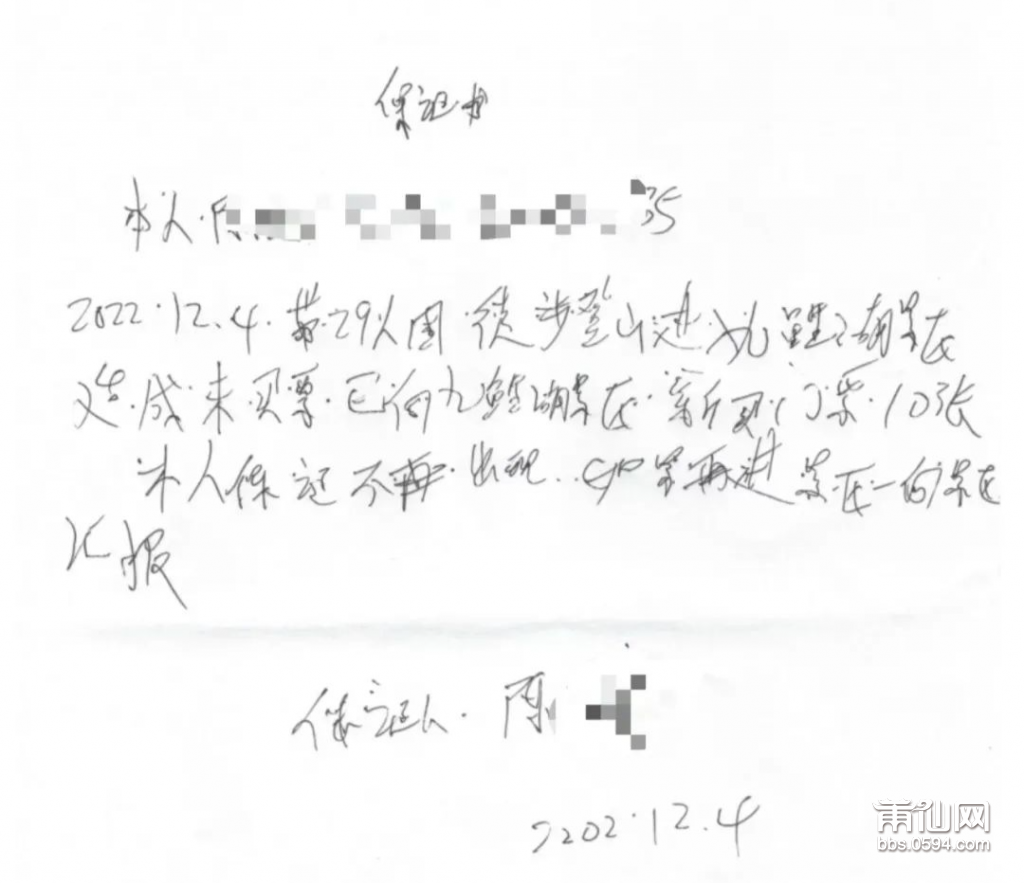 保证书
本人 35
2022.12.4.带29人团.徒步登山进九鲤湖景区
造成未买票.已向九鲤湖景区.新买门票.10张
本人保证不再.出现..如果再进景区一向景区
汇报
保证人. 陈
2202.12.4
莆仙网
bbs.0594.com